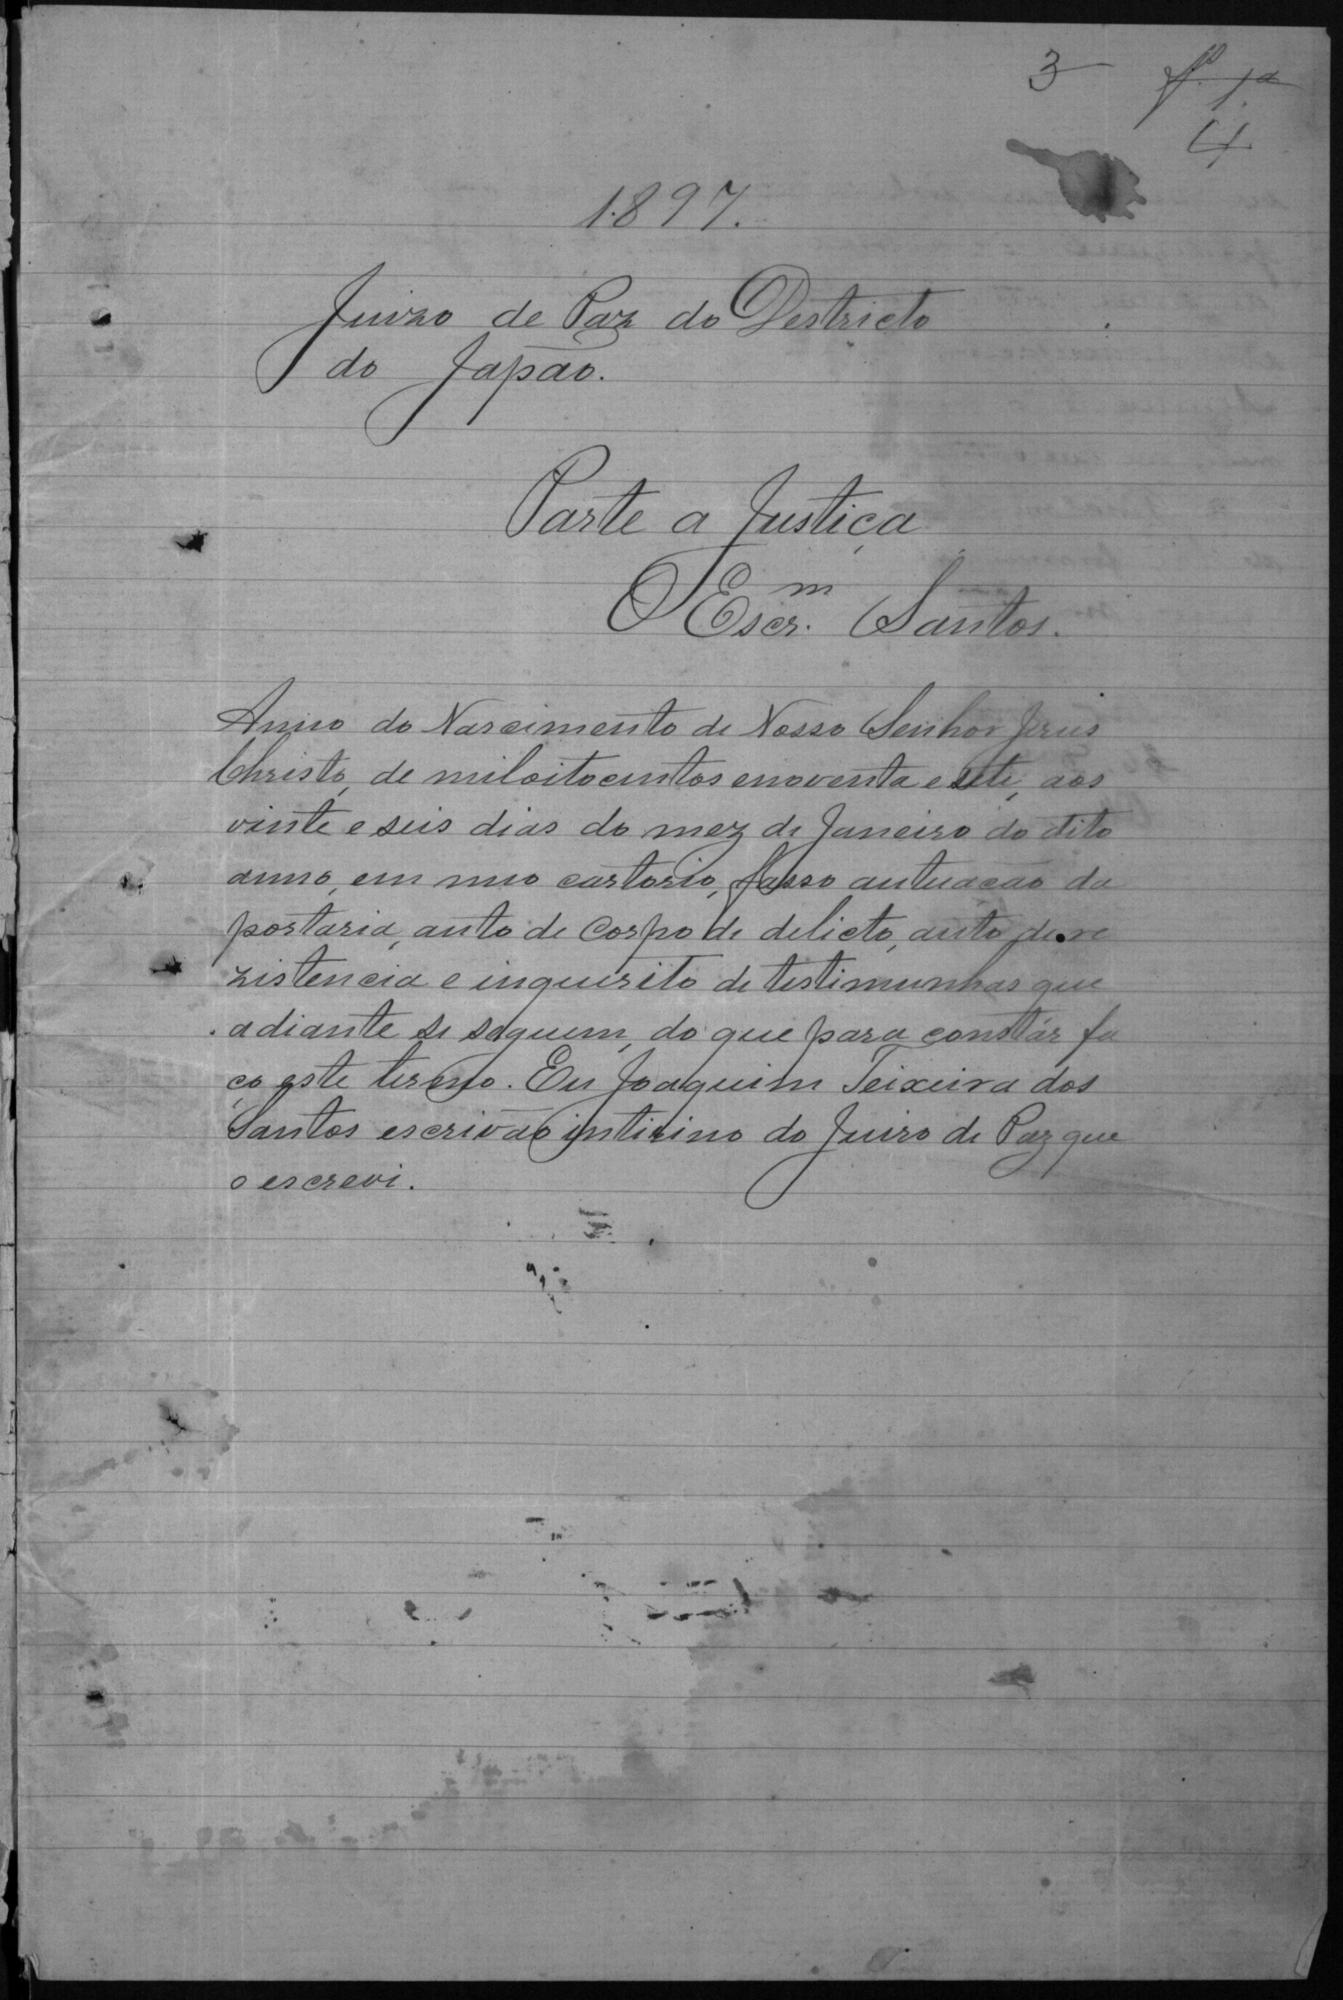 3 fl. 1a
4
1897.
Juizo de Paz do Destricto
do Japão.
Parte a Justiça
O Escr.m Santos.
Anno do Nascimento de Nosso Senhor Jesus
Christo, de miloitocentos enoventa e sete, aos
vinte e seis dias do mez de Janeiro do dito
anno, em meo cartorio, fasso autuacão da
portaria, auto de Corpo de delicto, auto de re
zistencia e inquerito de testimunhas que
adiante se seguem, do que para constár fa
ço este termo. Eu Joaquim Teixeira dos
Santos escrivão intirino do Juizo de Paz que
o escrevi.